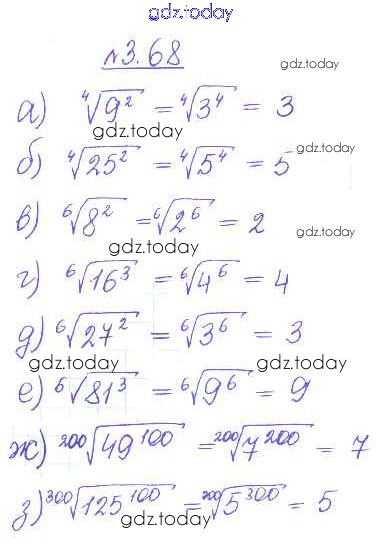 gdz.today
№3.68
gdz.today
а) ⁴√9² = ⁴√3⁴ = 3
gdz.today
gdz.today
б) ⁴√25² = ⁴√5⁴ = 5
в) ⁶√8² = ⁶√2⁶ = 2
gdz.today
gdz.today
г) ⁶√16³ = ⁶√4⁶ = 4
д) ⁶√27² = ⁶√3⁶ = 3
gdz.today
gdz.today
е) ⁶√81³ = ⁶√9⁶ = 9
gdz.today
ж) ²⁰⁰√49¹⁰⁰ = ²⁰⁰√7²⁰⁰ = 7
gdz.today
з) ³⁰⁰√125¹⁰⁰ = ³⁰⁰√5³⁰⁰ = 5
gdz.today